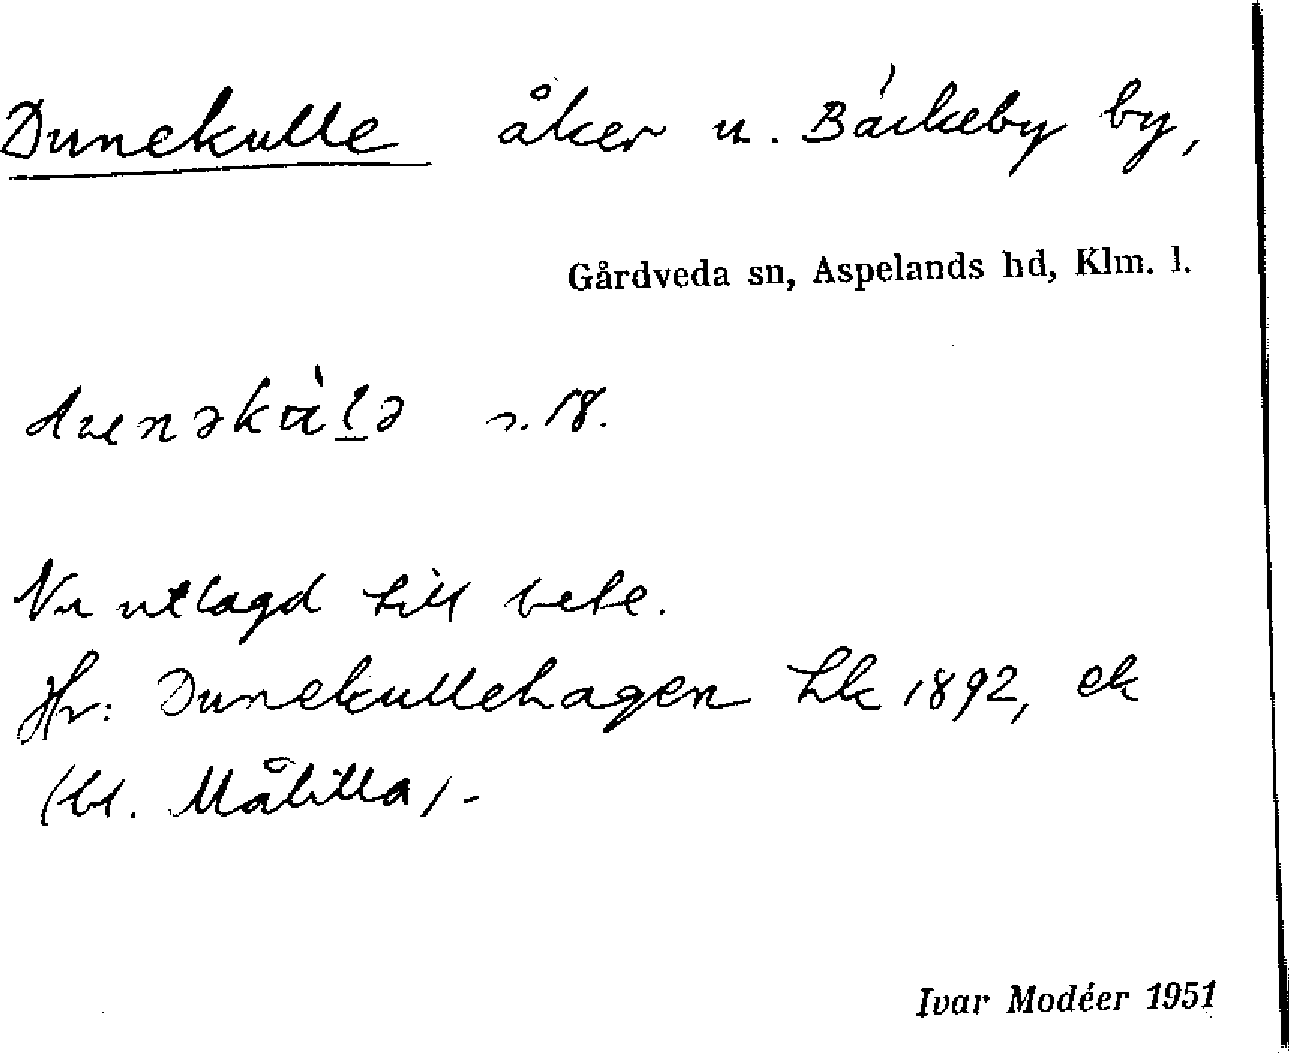 Dunekulle åker u. Bäckeby by,
Gårdveda sn, Aspelands hd, Klm. l.
s. 18.
Nu utlagd till bete.
Hr: Dunekullehagen Lk 1892, ek
(bl. Målilla).
Ivar Modéer 1951